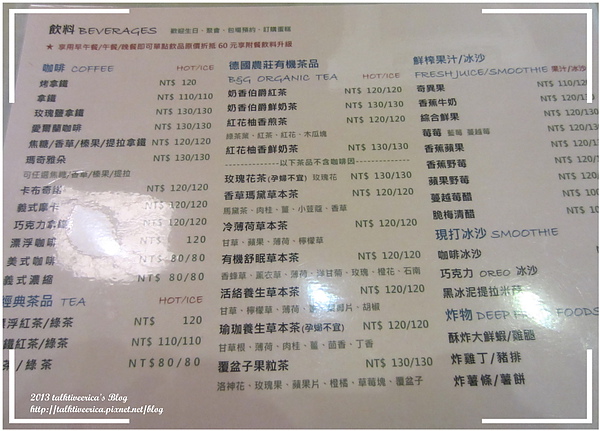 飲料 BEVERAGES 歡迎生日、聚會、包場預約、訂購蛋糕
★ 享用早午餐/午餐/晚餐即可單點飲品原價折抵 60 元享附餐飲料升級
咖啡 COFFEE HOT/ICE
烤拿鐵 NT$ 120
拿鐵 NT$ 110/110
玫瑰鹽拿鐵 NT$ 130/130
愛爾蘭咖啡 NT$ 130/130
焦糖/香草/榛果/提拉拿鐵 NT$ 120/120
瑪奇雅朵 NT$ 130/130
可任選焦糖/香草/榛果/提拉
卡布奇諾 NT$ 120/120
義式摩卡 NT$ 120/120
巧克力拿鐵 NT$ 120/120
漂浮咖啡 NT$ 120
美式咖啡 NT$ 80/80
義式濃縮 NT$ 80/80
經典茶品 TEA HOT/ICE
漂浮紅茶/綠茶 NT$ 120
鐵紅茶/綠茶 NT$ 110/110
茶/綠茶 NT$ 80/80
德國農莊有機茶品 HOT/ICE
B&G ORGANIC TEA
奶香伯爵紅茶 NT$ 120/120
奶香伯爵鮮奶茶 NT$ 130/130
紅花柚香煎茶 NT$ 120/120
綠茶、紅茶、紅花、木瓜塊
紅花柚香鮮奶茶 NT$ 130/130
--------------以下茶品不含咖啡因--------------
玫瑰花茶(孕婦不宜) 玫瑰花 NT$ 130/130
香草瑪黛草本茶 NT$ 120/120
馬黛茶、肉桂、薑、小荳蔻、香草
冷薄荷草本茶 NT$ 120/120
甘草、蘋果、薄荷、檸檬草
有機舒眠草本茶 NT$ 120/120
香蜂草、薰衣草、薄荷、洋甘菊、玫瑰、橙花、石南
活絡養生草本茶 NT$ 120/120
甘草、檸檬草、薄荷、胡椒
瑜珈養生草本茶(孕婦不宜) NT$ 120/120
甘草根、薄荷、肉桂、薑、茴香、丁香
覆盆子果粒茶 NT$ 130/130
洛神花、玫瑰果、蘋果片、橙橘、草莓塊、覆盆子
鮮榨果汁/冰沙
FRESH JUICE/SMOOTHIE 果汁/冰沙
奇異果 NT$ 120/
香蕉牛奶 NT$ 110/
綜合鮮果 NT$ 120/
莓莓 藍莓 蔓越莓 NT$ 120/
香蕉蘋果 NT$ 110/
香蕉野莓 NT$ 120/
蘋果野莓 NT$ 120/
蔓越莓醋 NT$ 100
脆梅清醋 NT$ 10
現打冰沙 SMOOTHIE
咖啡冰沙
巧克力 OREO 冰沙
黑冰泥提拉米蘇
炸物 DEEP FOODS
酥炸大鮮蝦/雞腿
炸雞丁/豬排
炸薯條/薯餅
2013 talktiveerica's Blog
http://talktiveerica.pixnet.net/blog